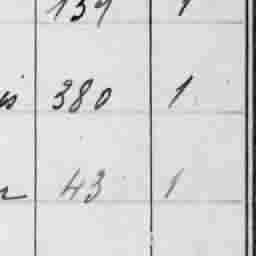 139 1
380 1
43 1